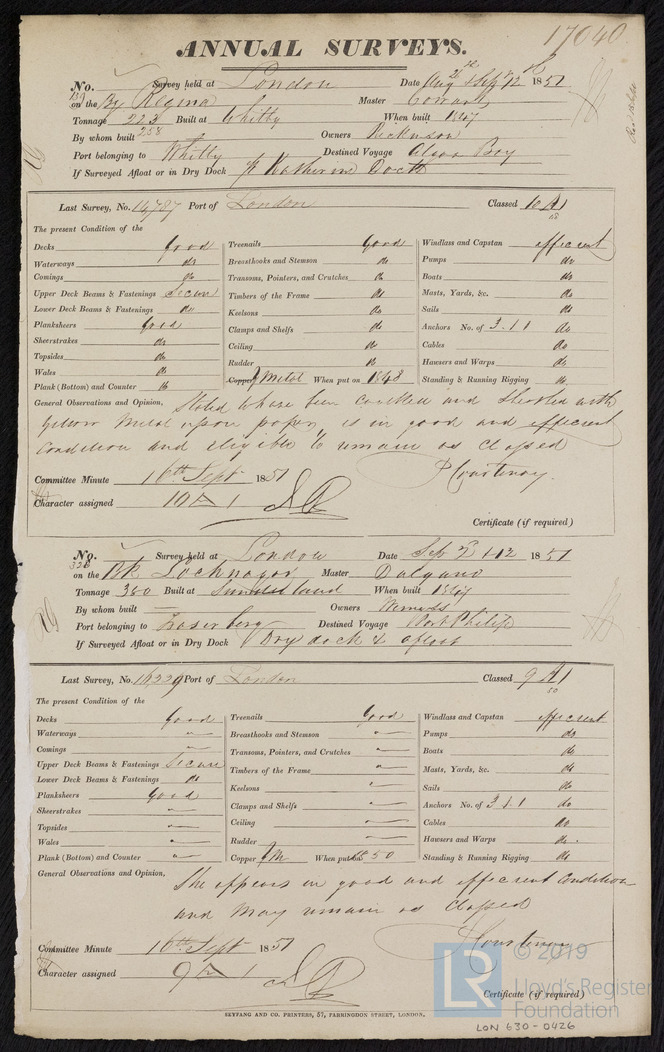 17040
ANNUAL SURVEYS.
No. Survey held at London Date Aug 26th & Sep 12 1851
on the Bg Regina Master Coward
Tonnage 223 Built at Whitby When built 1847
258
By whom built Owners Rickinson
Port belonging to Whitby Destined Voyage Algoa Bay
If Surveyed Afloat or in Dry Dock St Katherine Dock
Last Survey, No. 16,787 Port of London Classed 10 A 1
The present Condition of the
Decks good Treenails Good Windlass and Capstan efficient
Waterways do Breasthooks and Stemson do Pumps do
Comings do Transoms, Pointers, and Crutches do Boats do
Upper Deck Beams & Fastenings Secure Timbers of the Frame do Masts, Yards, &c. do
Lower Deck Beams & Fastenings do Keelsons do Sails do
Planksheers Good Clamps and Shelfs do Anchors No. of 3.1.1 do
Sheerstrakes do Ceiling do Cables do
Topsides do Rudder do Hawsers and Warps do
Wales do Copper Y Metal When put on 1848 Standing & Running Rigging do
Plank (Bottom) and Counter do
General Observations and Opinion, Stated to have been caulked and sheathed with
yellow metal upon paper, is in good and efficient
condition and eligible to remain as classed
P Courtenay.
Committee Minute 16th Sept 1851
Character assigned 10 A 1
Certificate (if required)
No. Survey held at London Date Sep 1-12 1851
326
on the Bk Lochnagar Master Dalgarno
Tonnage 380 Built at Sunderland When built
By whom built Owners
Port belonging to Fraserburg Destined Voyage Port Philip
If Surveyed Afloat or in Dry Dock Dry dock & afloat
Last Survey, No. 16229 Port of London Classed 9 A 1
50
The present Condition of the
Decks Good Treenails Good Windlass and Capstan efficient
Waterways Breasthooks and Stemson Pumps do
Comings Transoms, Pointers, and Crutches Boats do
Upper Deck Beams & Fastenings Secure Timbers of the Frame Masts, Yards, &c. do
Lower Deck Beams & Fastenings do Keelsons Sails do
Planksheers Good Clamps and Shelfs Anchors No. of 3.1.1 do
Sheerstrakes Ceiling Cables do
Topsides Rudder Hawsers and Warps do
Wales Copper Y M When put on 1850 Standing & Running Rigging do
Plank (Bottom) and Counter
General Observations and Opinion, She appears in good and efficient condition
and may remain as classed
P Courtenay
Committee Minute 16th Sept 1851
Character assigned 9 A 1
Certificate (if required)
SEYFANG AND CO. PRINTERS, 57, FARRINGDON STREET, LONDON.
LR © 2019
Lloyd's Register
Foundation
LON 630-0426